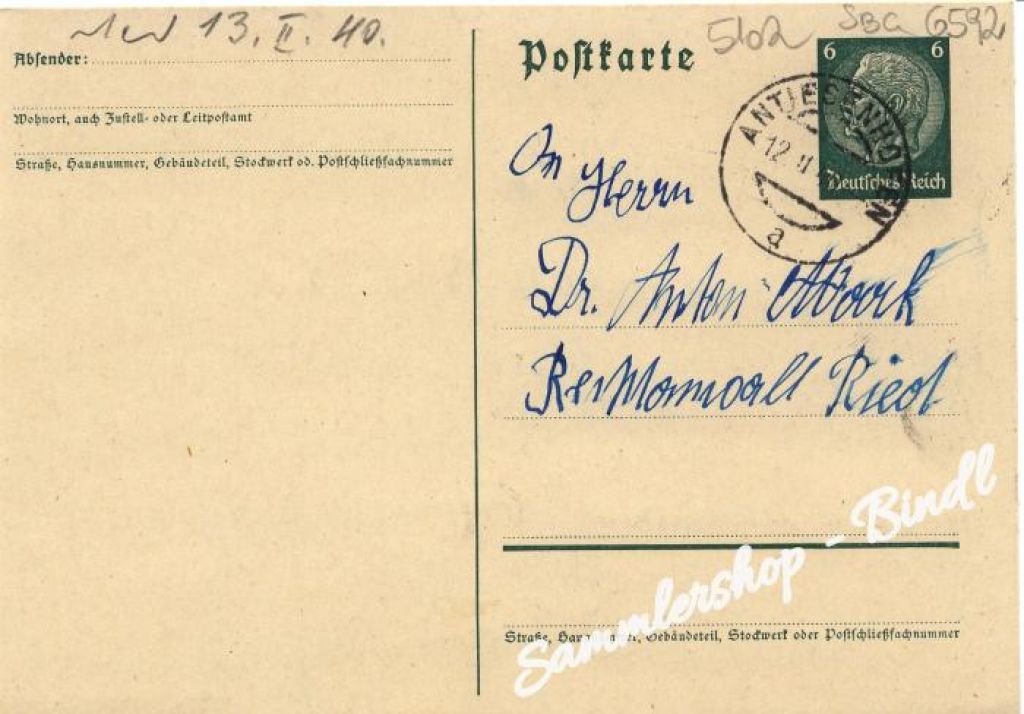 13. II. 40.
5102
SBG 6592
Absender:
Wohnort, auch Zustell- oder Leitpostamt
Straße, Hausnummer, Gebäudeteil, Stockwerk od. Postschließfachnummer
Postkarte
6 6
Deutsches Reich
ANTIESENHOFEN
12. II
a
An Herrn
Dr. Anton
Rechtsanwalt Ried
Sammlershop - Bindl
Straße, Gebäudeteil, Stockwerk oder Postschließfachnummer